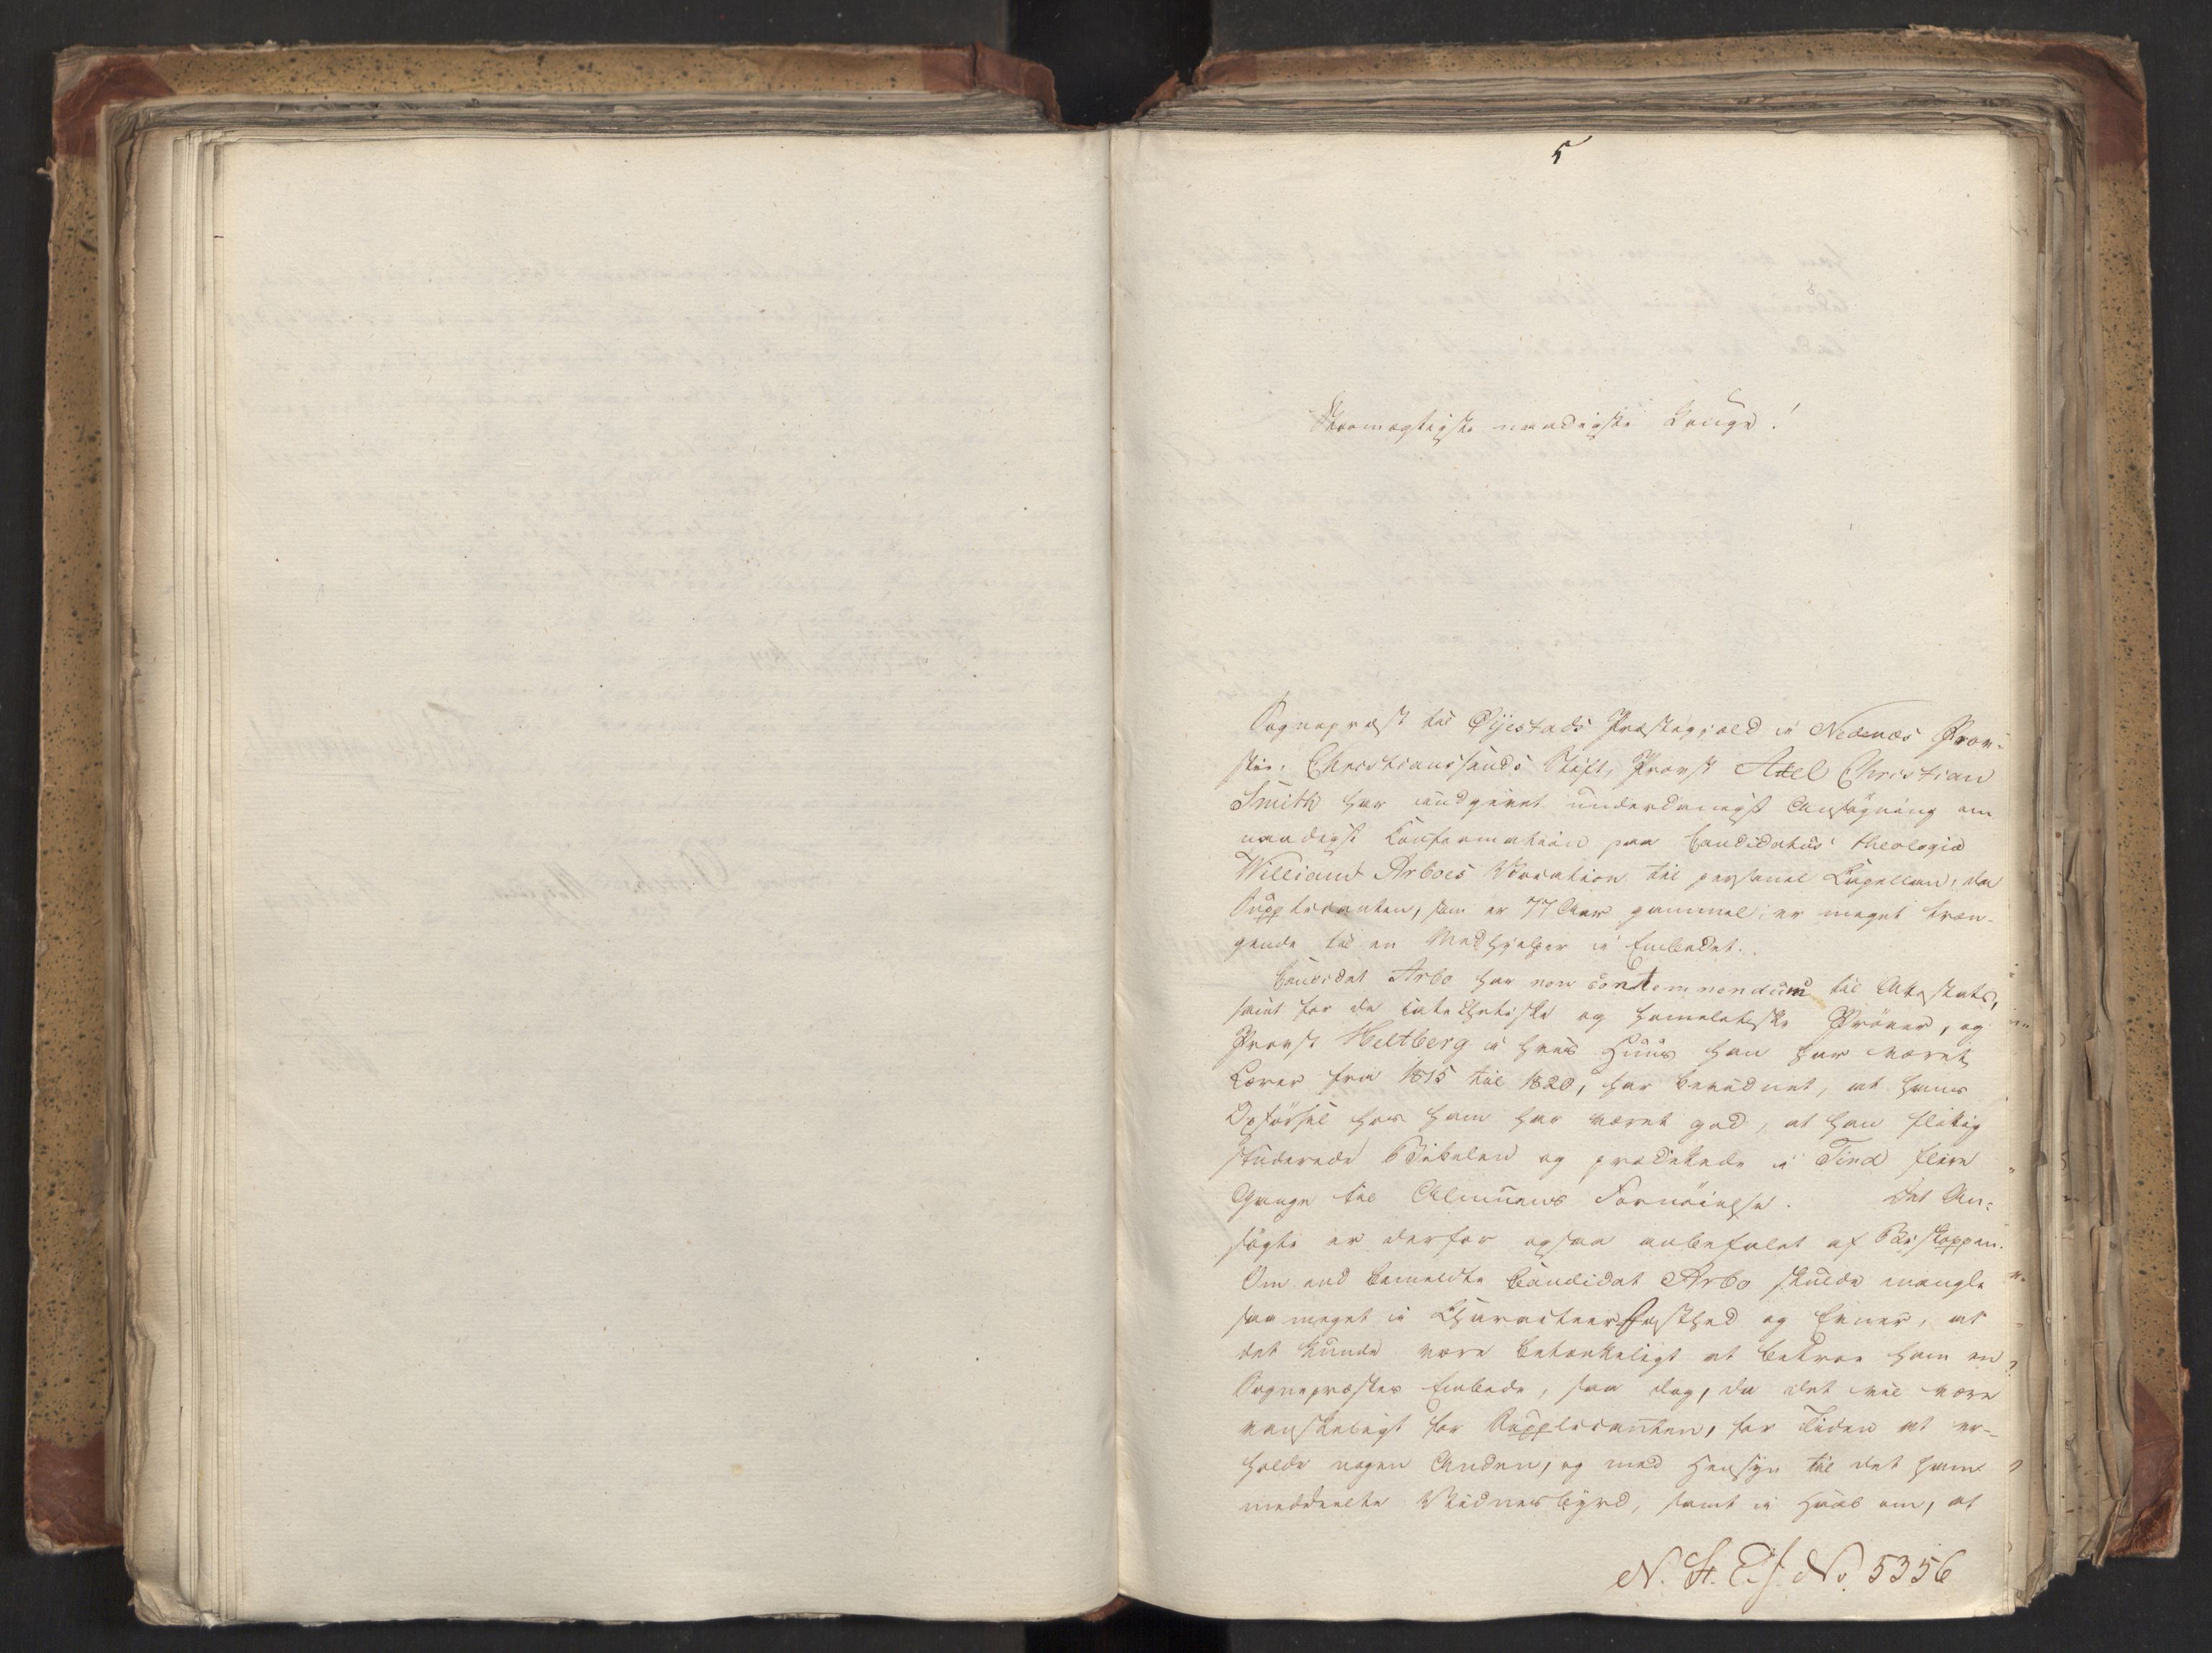 5
Stormægtigste naadigste Konge!
Sognepræst til Øijestads Præstegield i Nedenæs Prov-
stie, Christianssands Stift, Provst Axel Christian
Smith har indgivet underdanigst Ansøgning om
naadigst Confirmation paa Candidatus theologiæ
Williams Arboes Vocation til personel Capellan, da
Supplicanten, som er 77 Aar gammel, er meget træn-
gende til en Medhjelper i Embedet.
Candidat Arbo har non contemnendum til Attestats,
samt for de catechetiske og homiletiske Prøver, og
Provst Heltberg i hvis Huus han har været
Lærer fra 1815 til 1820, har bevidnet, at hans
Opførsel hos ham har været god, at han flitig
studerede Bibelen og prædikede i Tind flere
Gange til Almuens Fornøielse. Det An-
søgte er derfor ogsaa anbefalet af Biskoppen.
Om end bemeldte Candidat Arbo skulde mangle
saa meget i Characteer Fasthed og Evner, at
det kunde være betænkeligt at betroe ham en
Sognepræstes Embede, saa dog, da det vil være
vanskeligt for Supplicanten, for Tiden at er-
holde nogen Anden, og med Hensyn til det ham
meddeelte Vidnesbyrd, samt i Haab om, at
N. St. E. J. No. 5356